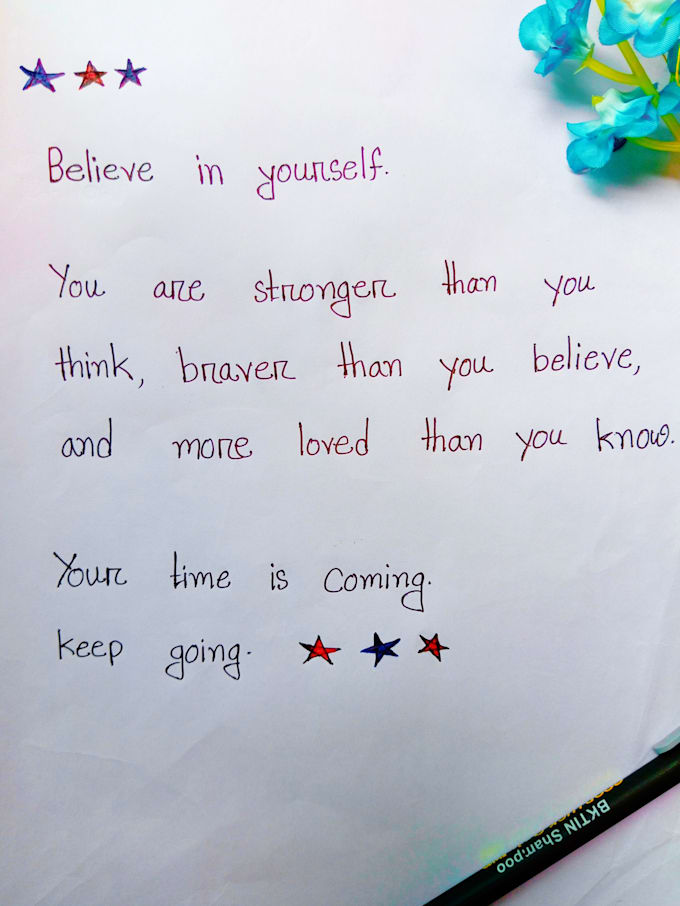 Believe in yourself.
You are stronger than you
think, braver than you believe,
and more loved than you know.
Your time is coming.
keep going.
BKTIN Sharr:poo